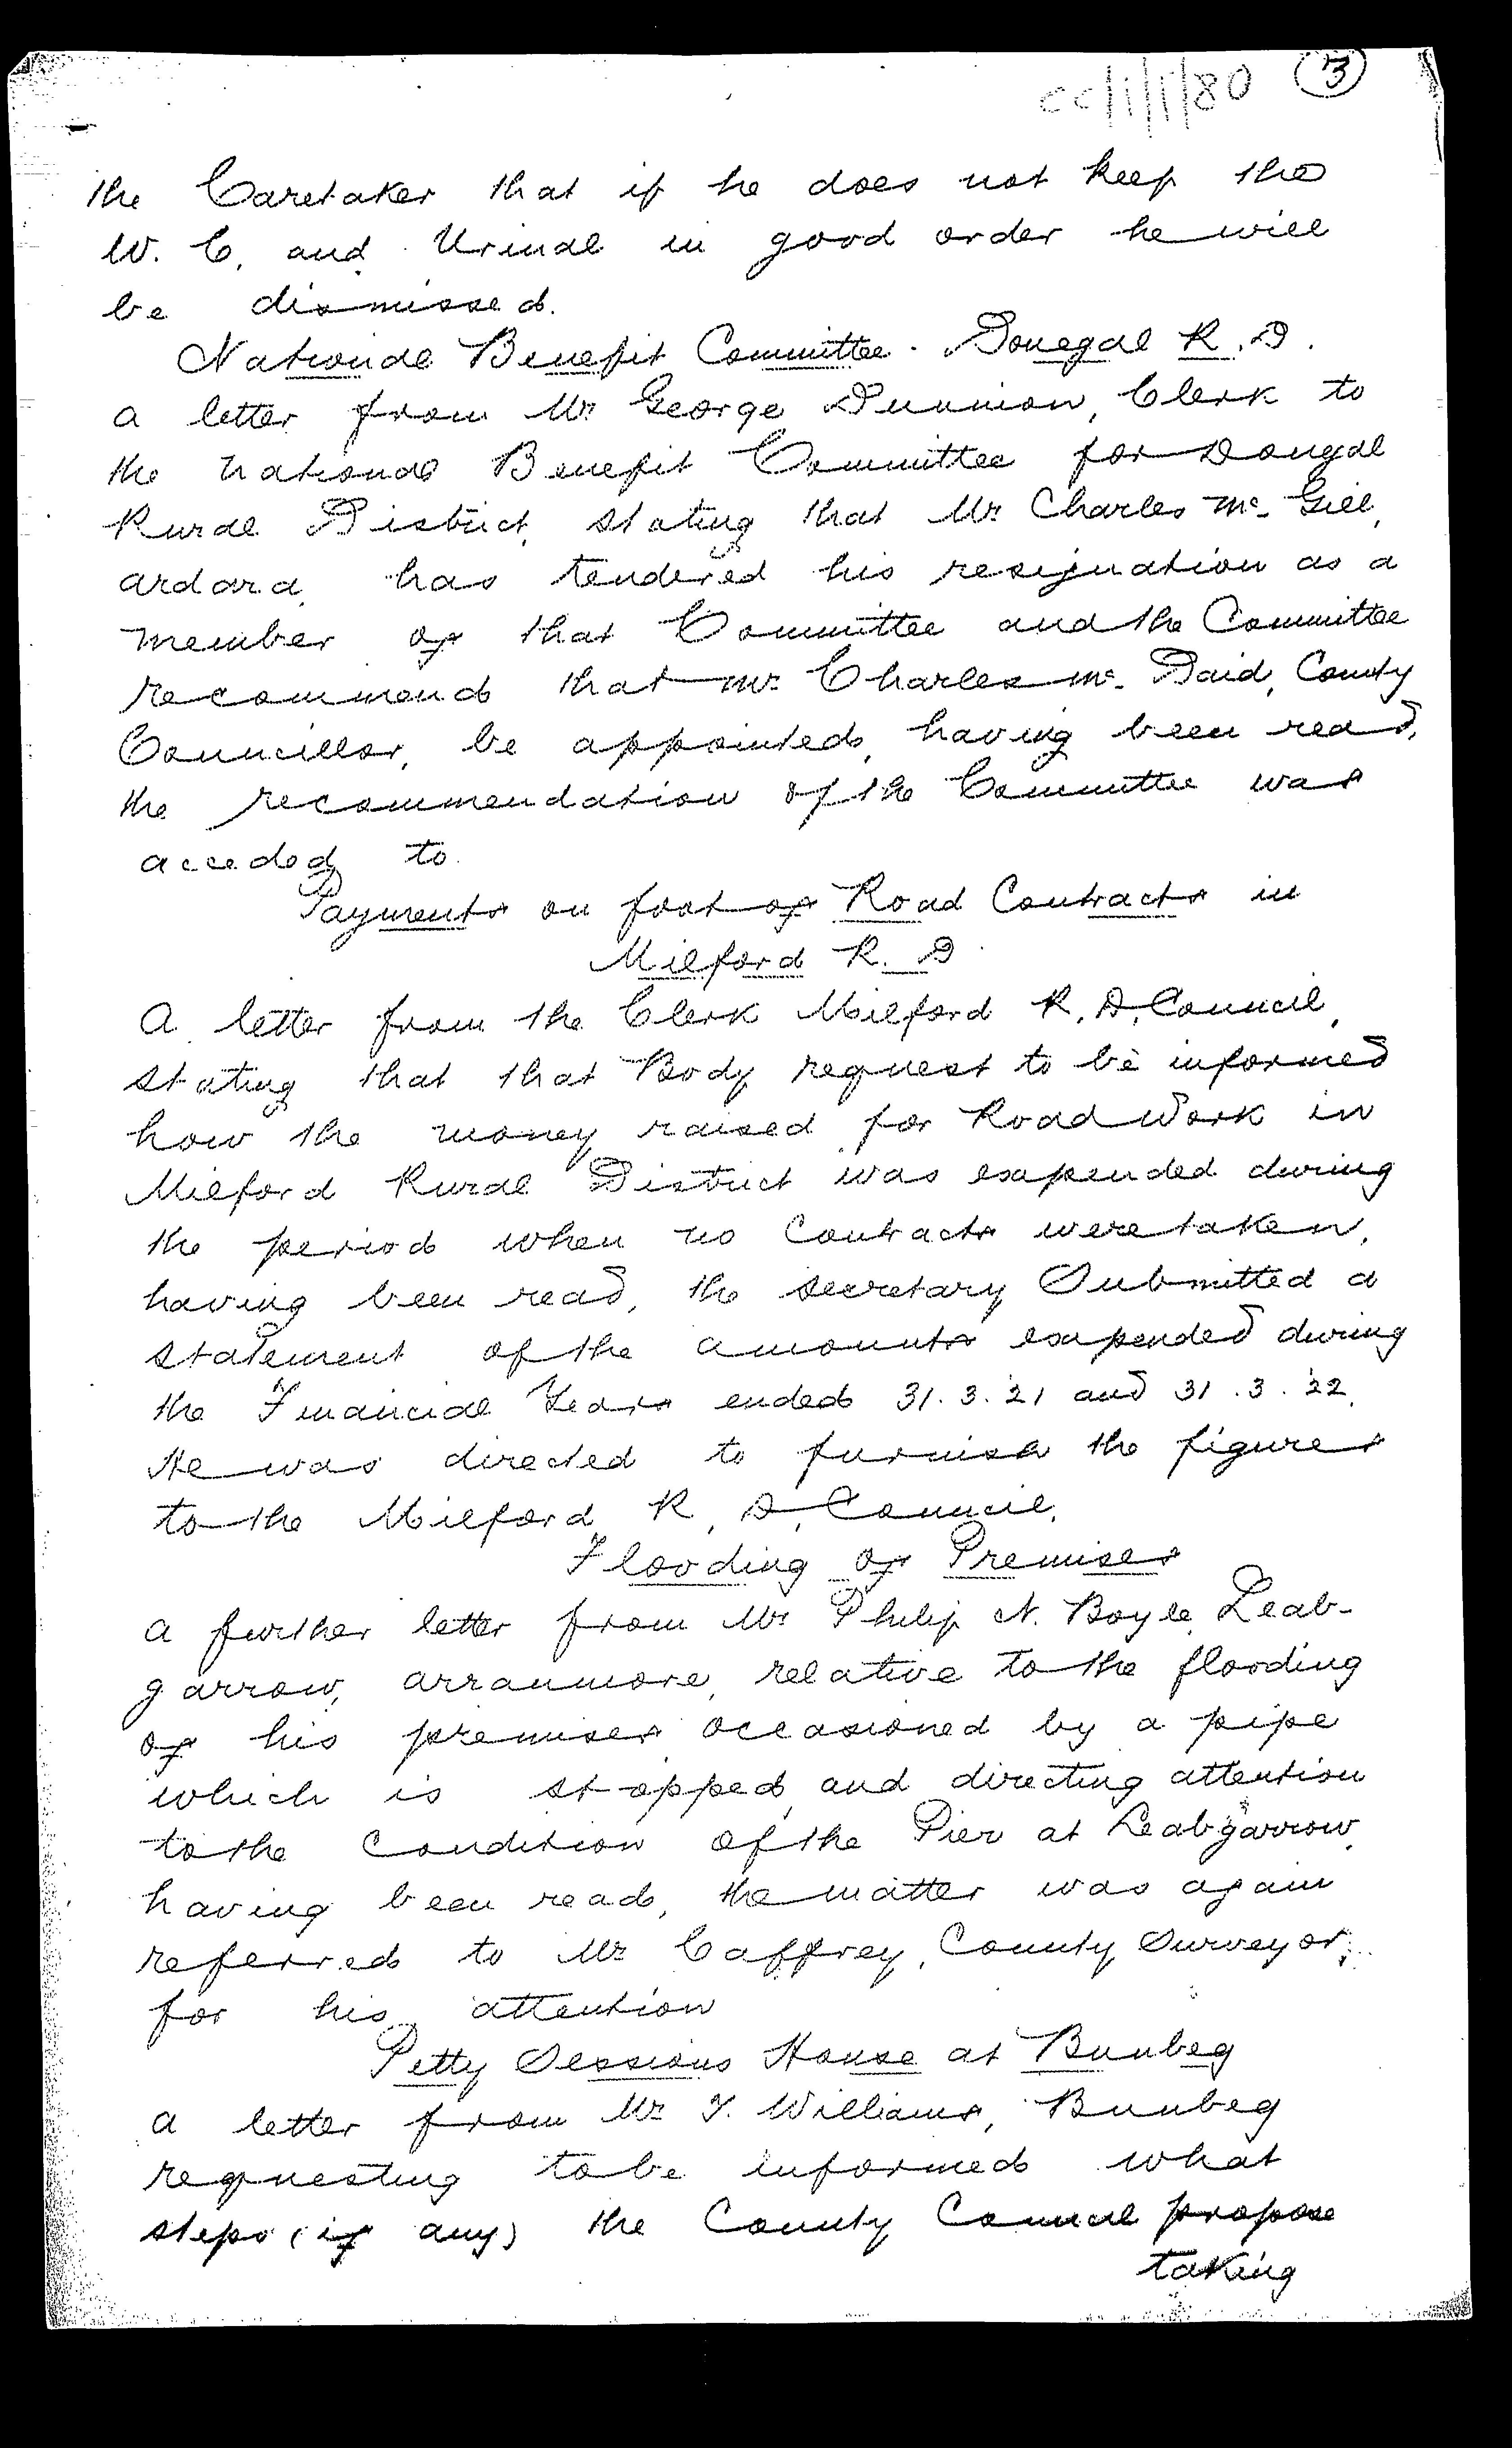 cc/1/1/80 3
the Caretaker that if he does not keep the
W. C. and Urinal in good order he will
be dismissed.
National Benefit Committee. Donegal R. D.
a letter from Mr George Dunnion, Clerk to
the National Benefit Committee for Dongal
Rural District, stating that Mr Charles Mc Gill,
ardara, has tendered his resignation as a
member of that Committee and the Committee
recommend that Mr Charles Mc Daid, County
Councillor, be appointed, having been read,
the recommendation of the Committee was
acceded to.
Payments on foot of Road Contracts in
Milford R. D.
A letter from the Clerk Milford R. D. Council,
stating that that Body request to be informed
how the money raised for Road Work in
Milford Rural District was expended during
the period when no Contracts were taken,
having been read, the secretary Submitted a
statement of the amounts expended during
the Financial Years ended 31.3.'21 and 31.3.'22.
He was directed to furnish the figures
to the Milford R. D. Council.
Flooding of Premises
a further letter from Mr Philip N. Boyle, Leab-
garrow, arranmore, relative to the flooding
of his premises occasioned by a pipe
which is stopped, and directing attention
to the Condition of the Pier at Leabgarrow,
having been read, the matter was again
referred to Mr Caffrey, County Surveyor,
for his attention
Petty Sessions House at Bunbeg
a letter from Mr Y. Williams, Bunbeg
requesting to be informed what
steps (if any) the County Council propose
taking